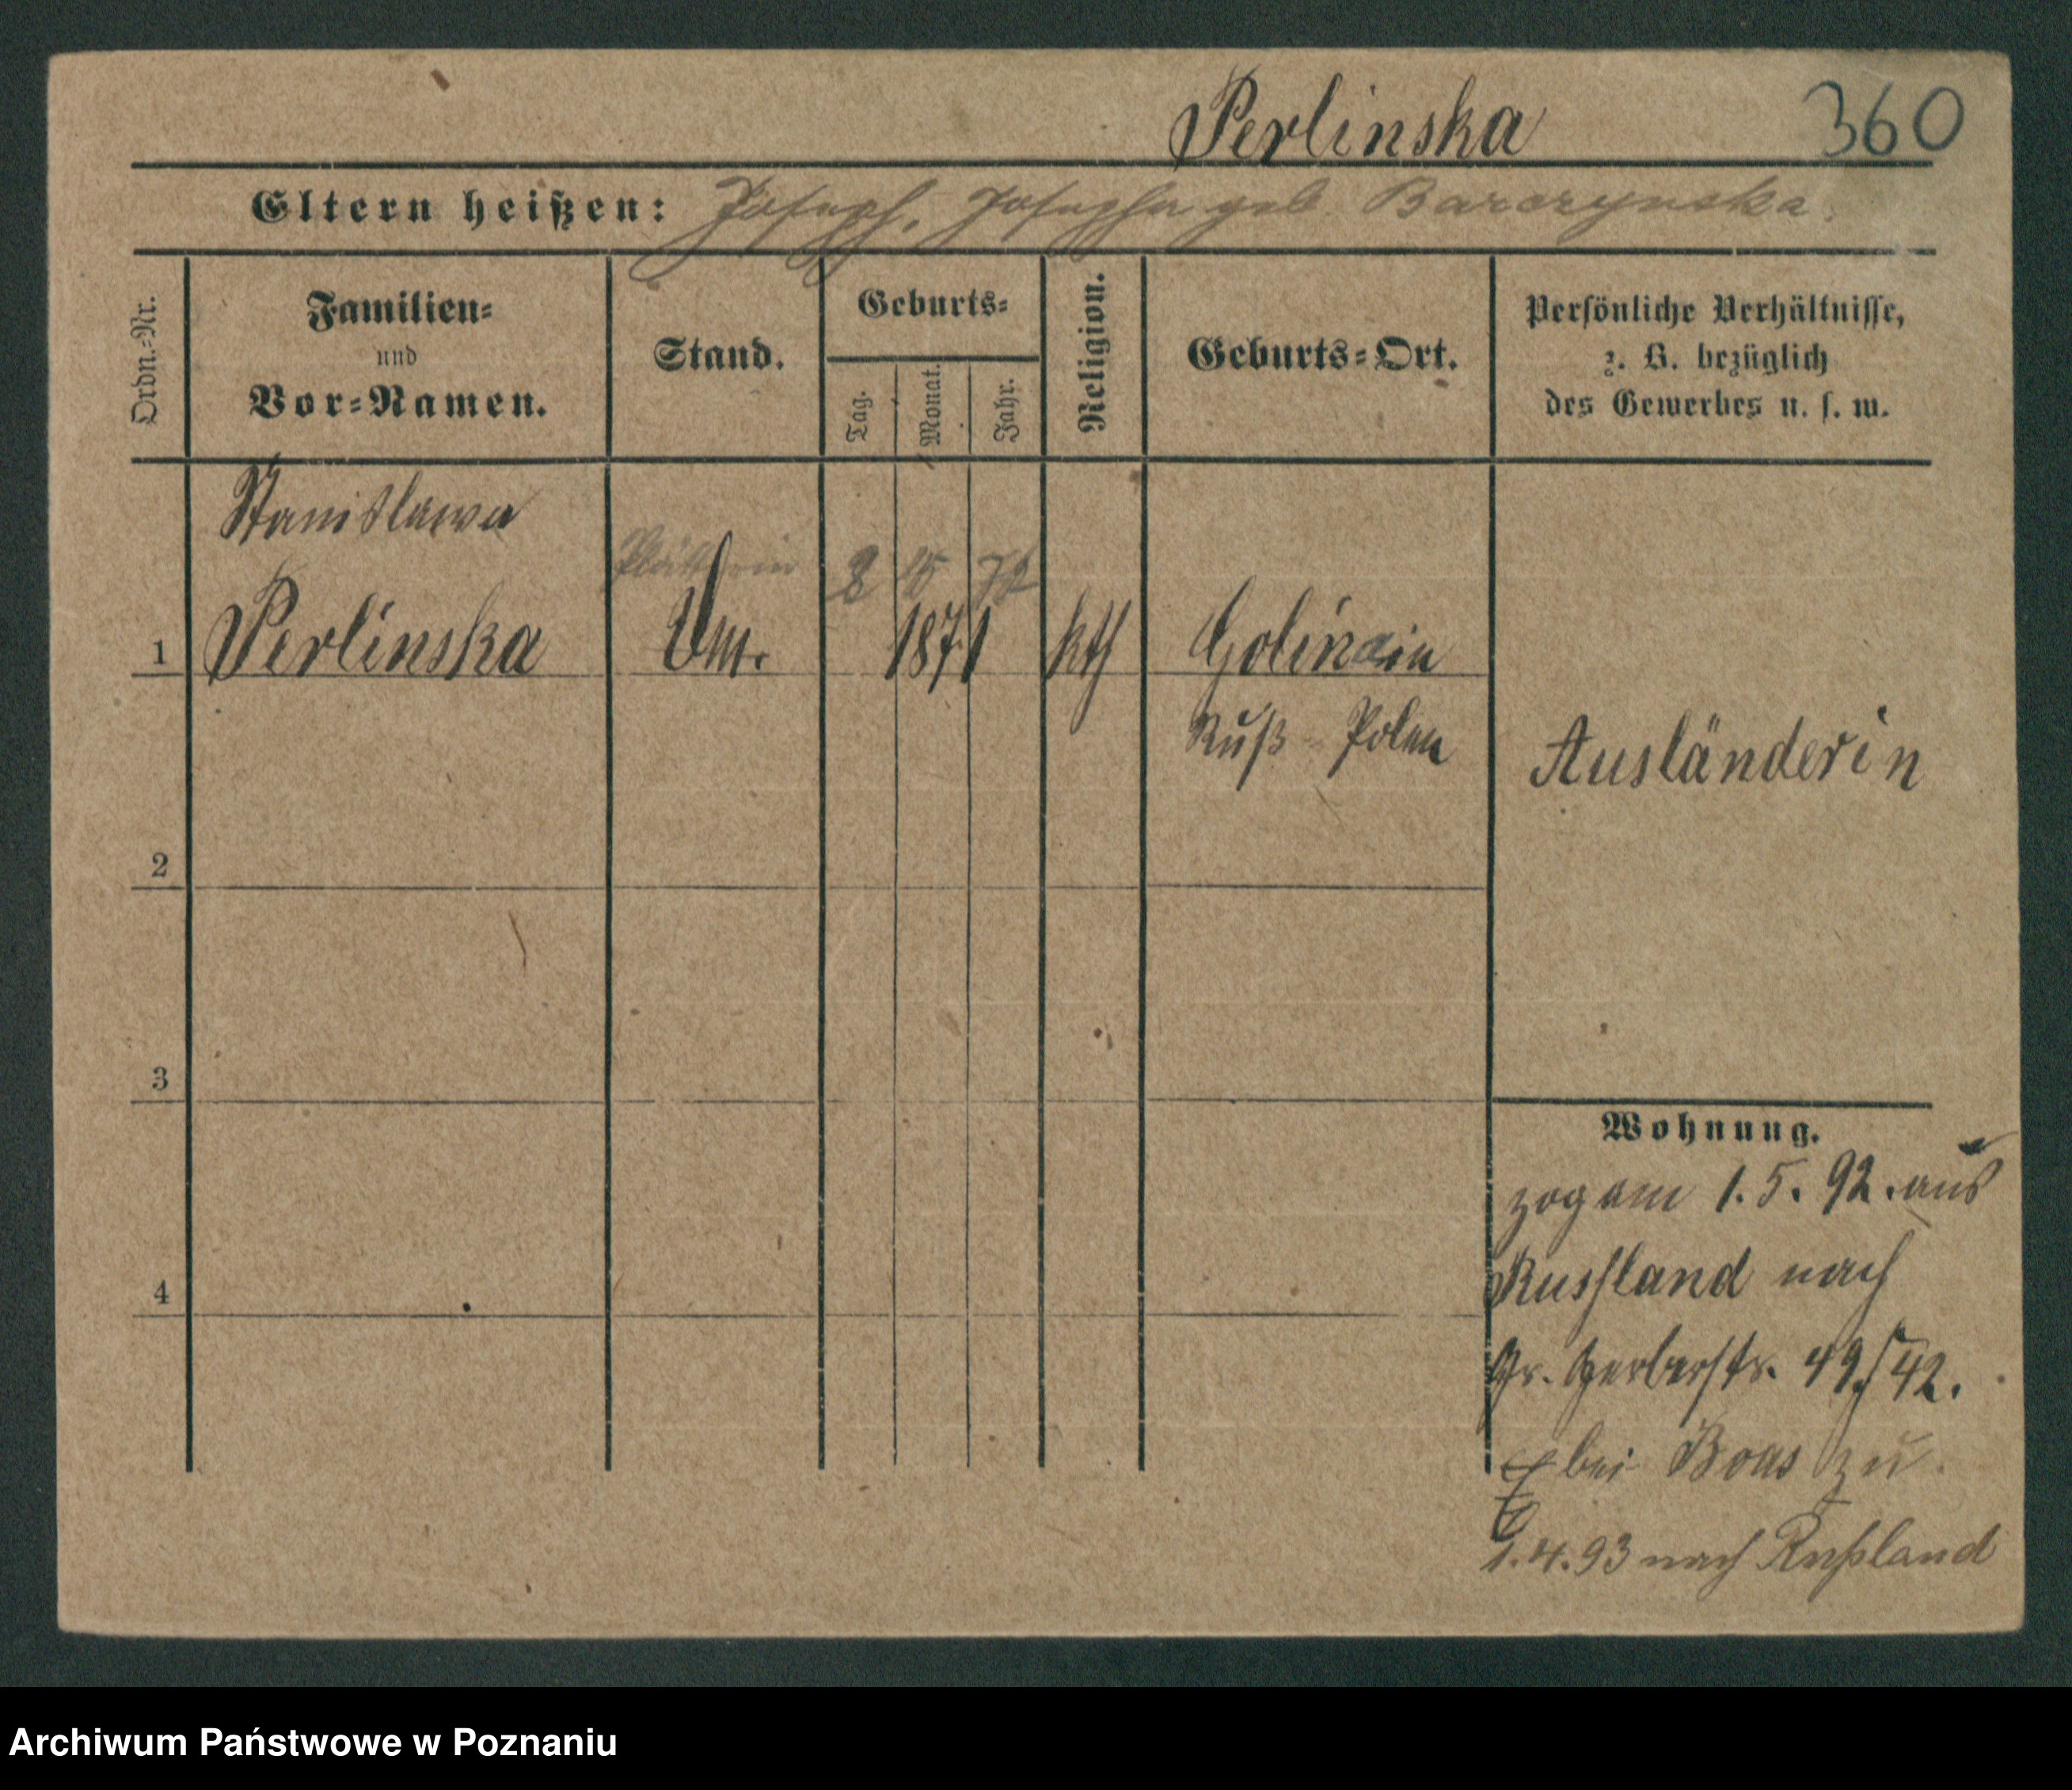 Perlinska 360
Eltern heißen: Joseph, Josepha geb Barczynska.
Ordn.-Nr.
Familien-
und
Vor-Namen.
Stand.
Geburts-
Tag.
Monat.
Jahr.
Religion.
Geburts-Ort.
Persönliche Verhältnisse,
z. B. bezüglich
des Gewerbes u. s. w.
Stanislawa
Plätterin 8 10 72
1 Perlinska 1871 kth
Ruß-Polen
Ausländerin
2
3
4
Wohnung.
zog am 1. 5. 92. aus
Russland nach
Gr. Gerberstr. 49/42.
bei Boas zu
1.4.93 nach Rußland
Archiwum Państwowe w Poznaniu